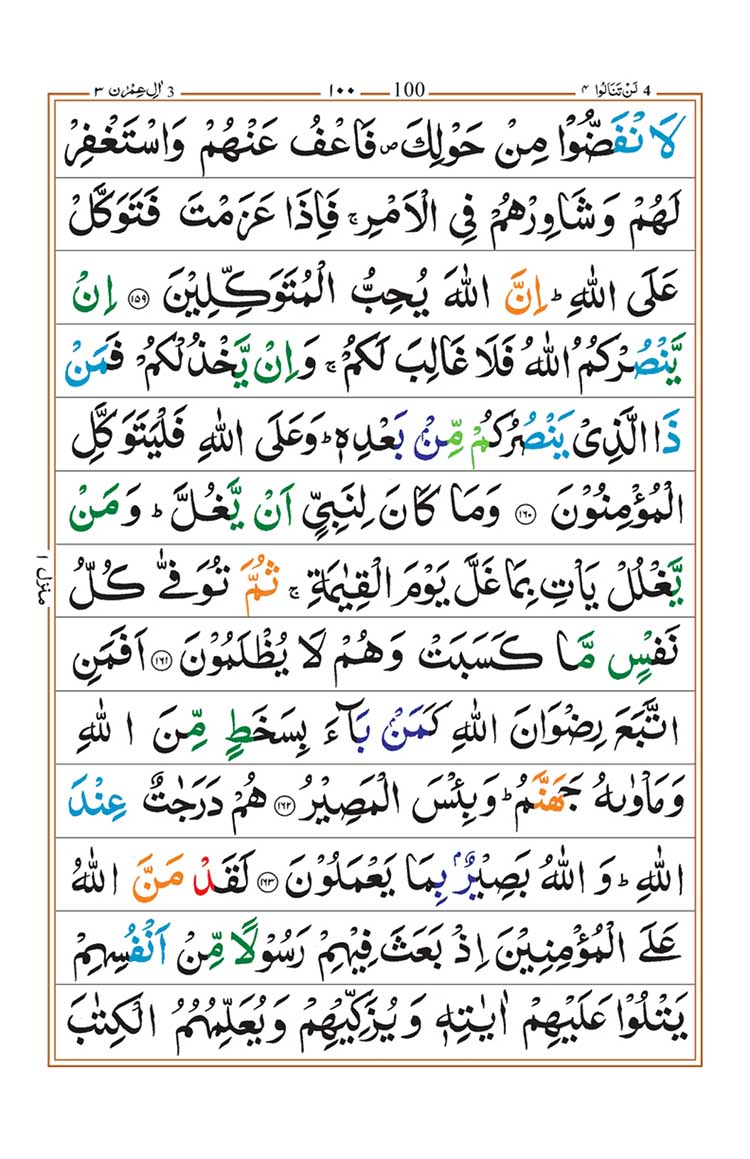 4 لَنْ تَنَالُوا ٤ 100 ١٠٠ 3 اٰلِ عِمْرٰن ٣
لَانْفَضُّوْا مِنْ حَوْلِكَ ۪ فَاعْفُ عَنْهُمْ وَاسْتَغْفِرْ
لَهُمْ وَشَاوِرْهُمْ فِي الْاَمْرِ ۚ فَاِذَا عَزَمْتَ فَتَوَكَّلْ
عَلَى اللّٰهِ ؕ اِنَّ اللّٰهَ يُحِبُّ الْمُتَوَكِّلِيْنَ ١٥٩ اِنْ
يَّنْصُرْكُمُ اللّٰهُ فَلَا غَالِبَ لَكُمْ ۚ وَاِنْ يَّخْذُلْكُمْ فَمَنْ
ذَا الَّذِيْ يَنْصُرُكُمْ مِّنْۢ بَعْدِهٖ ؕ وَعَلَى اللّٰهِ فَلْيَتَوَكَّلِ
الْمُؤْمِنُوْنَ ١٦٠ وَمَا كَانَ لِنَبِيٍّ اَنْ يَّغُلَّ ؕ وَمَنْ
يَّغْلُلْ يَاْتِ بِمَا غَلَّ يَوْمَ الْقِيٰمَةِ ۚ ثُمَّ تُوَفّٰى كُلُّ
نَفْسٍ مَّا كَسَبَتْ وَهُمْ لَا يُظْلَمُوْنَ ١٦١ اَفَمَنِ
اتَّبَعَ رِضْوَانَ اللّٰهِ كَمَنْۢ بَآءَ بِسَخَطٍ مِّنَ اللّٰهِ
وَمَاْوٰىهُ جَهَنَّمُ ؕ وَبِئْسَ الْمَصِيْرُ ١٦٢ هُمْ دَرَجٰتٌ عِنْدَ
اللّٰهِ ؕ وَاللّٰهُ بَصِيْرٌۢ بِمَا يَعْمَلُوْنَ ١٦٣ لَقَدْ مَنَّ اللّٰهُ
عَلَى الْمُؤْمِنِيْنَ اِذْ بَعَثَ فِيْهِمْ رَسُوْلًا مِّنْ اَنْفُسِهِمْ
يَتْلُوْا عَلَيْهِمْ اٰيٰتِهٖ وَيُزَكِّيْهِمْ وَيُعَلِّمُهُمُ الْكِتٰبَ
منزل ١